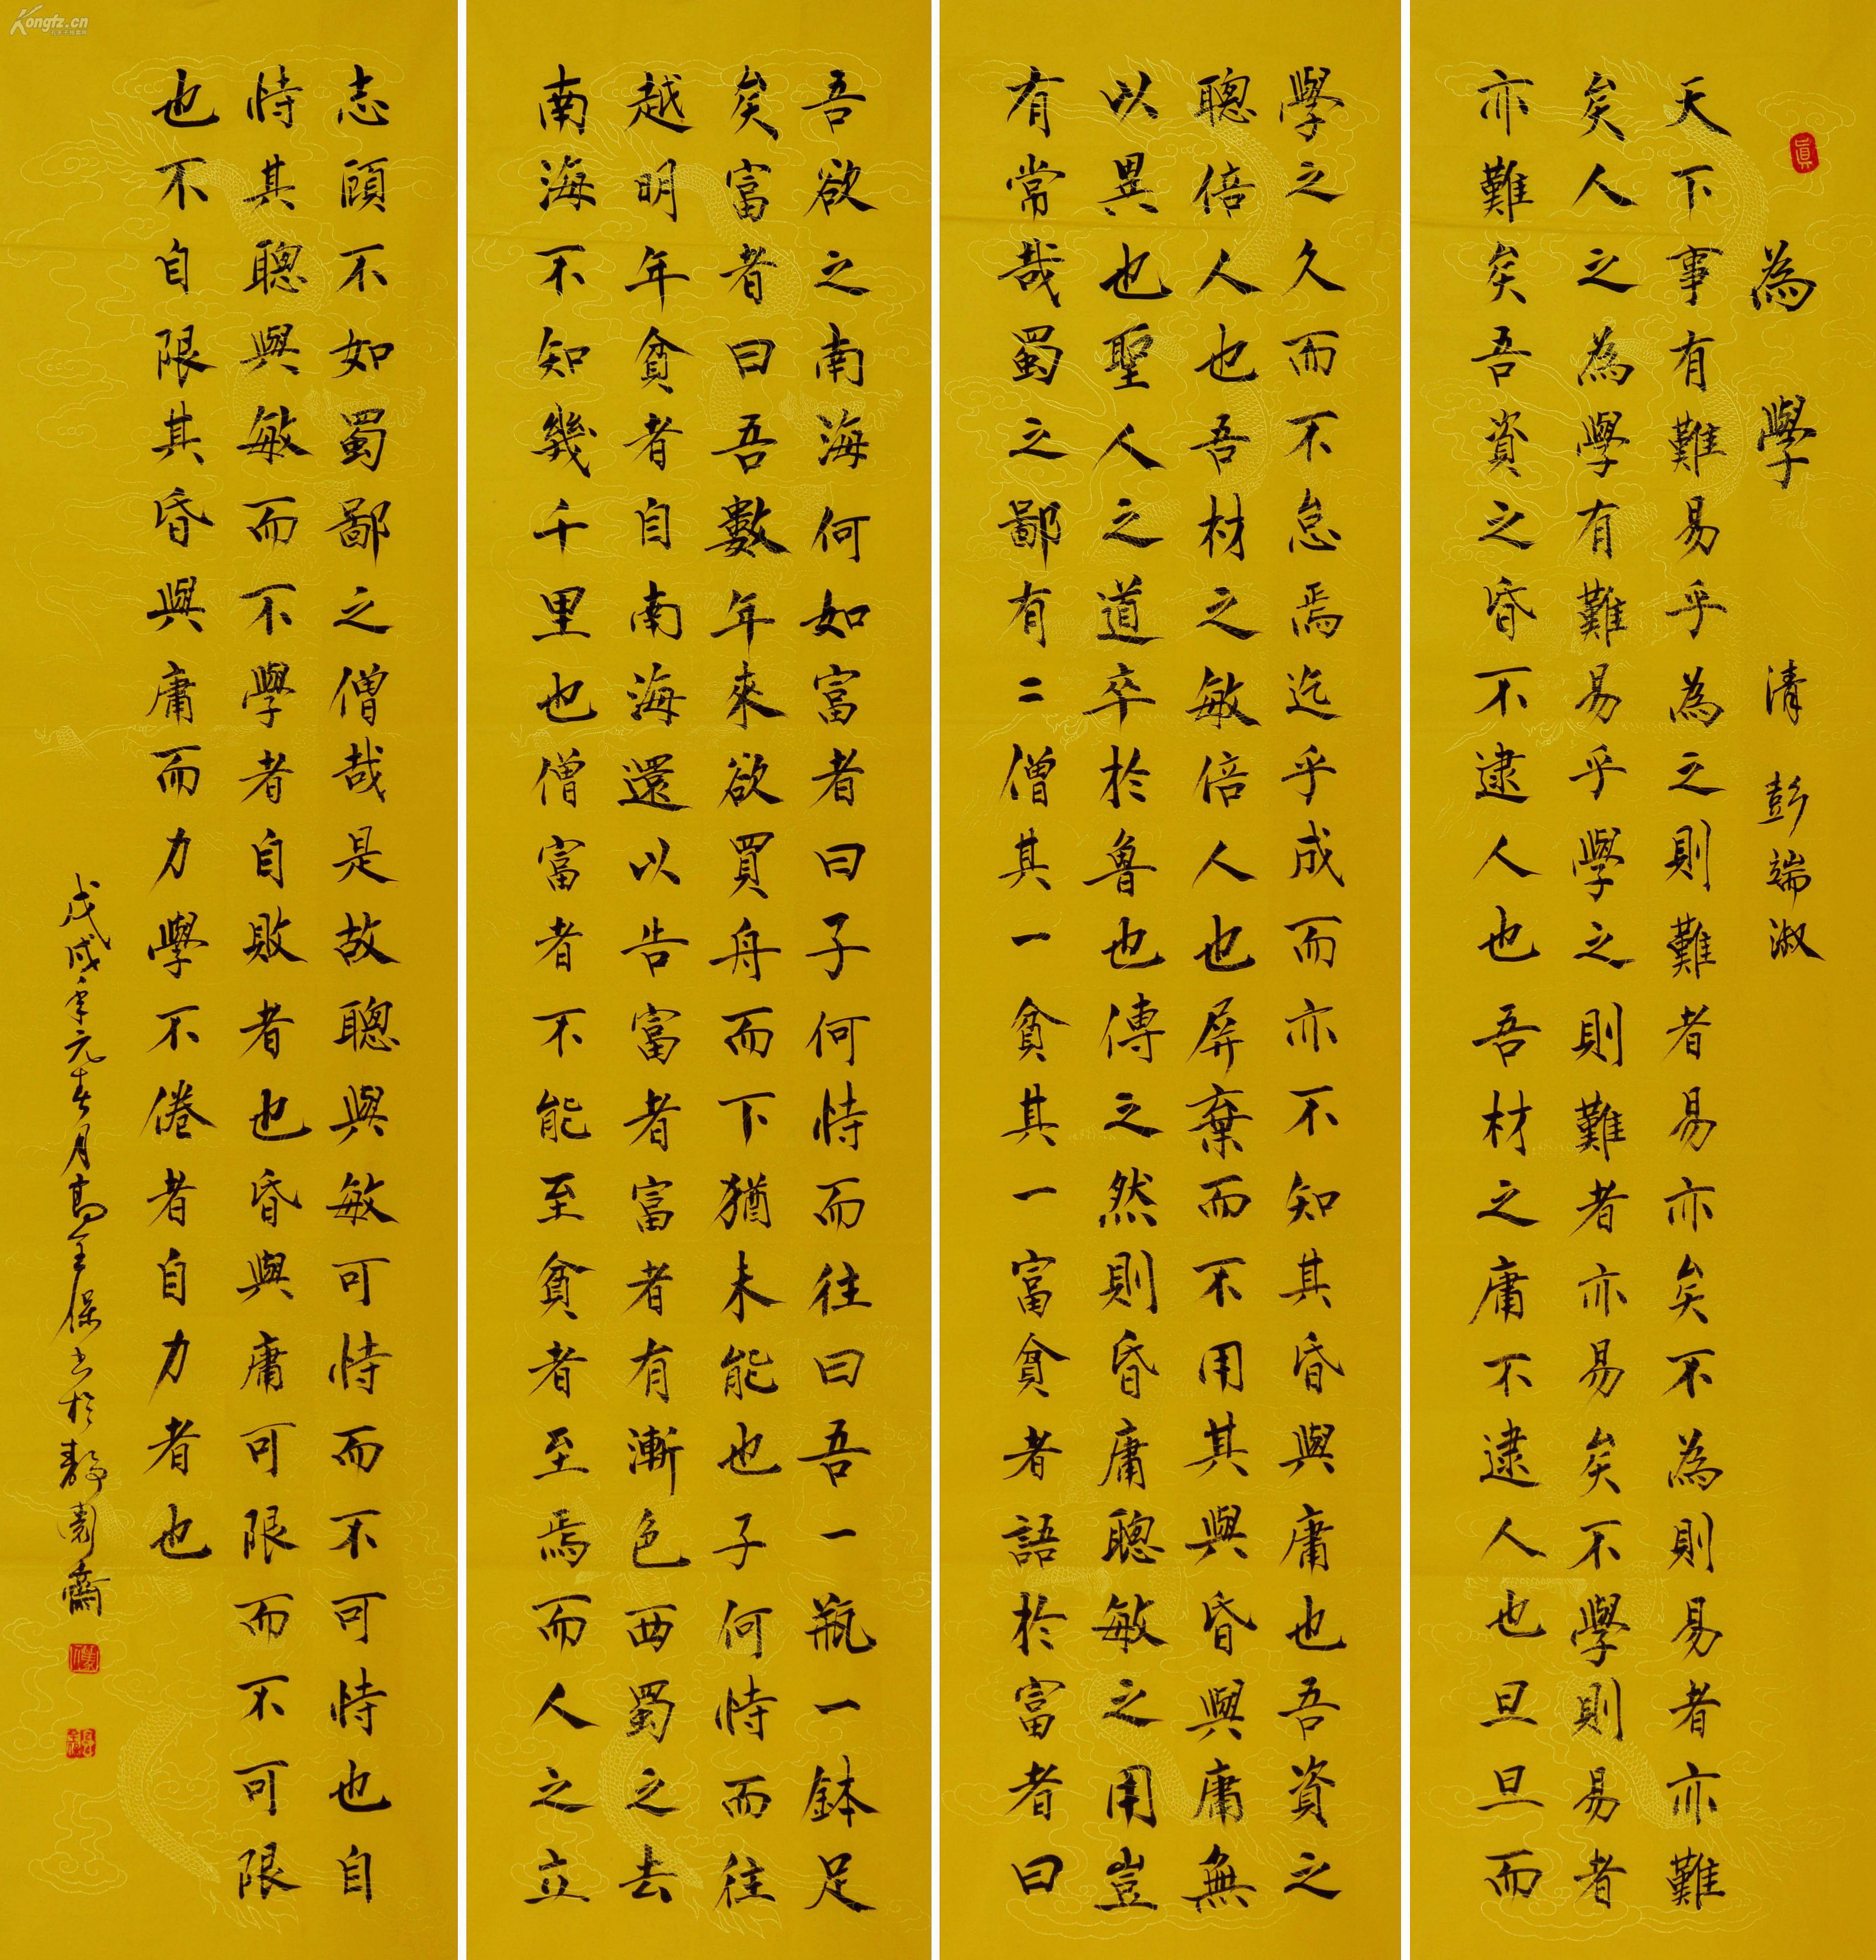 Kongfz.cn
為學 清 彭端淑
天下事有難易乎為之則難者易亦矣不為則易者亦難
矣人之為學有難易乎學之則難者亦易矣不學則易者
亦難矣吾資之昏不逮人也吾材之庸不逮人也旦旦而
學之久而不怠焉迄乎成而亦不知其昏與庸也吾資之
聰倍人也吾材之敏倍人也屏棄而不用其與昏與庸無
以異也聖人之道卒於魯也傳之然則昏庸聰敏之用豈
有常哉蜀之鄙有二僧其一貧其一富貧者語於富者曰
吾欲之南海何如富者曰子何恃而往曰吾一瓶一鉢足
矣富者曰吾數年來欲買舟而下猶未能也子何恃而往
越明年貧者自南海還以告富者富者有漸色西蜀之去
南海不知幾千里也僧富者不能至貧者至焉而人之立
志顧不如蜀鄙之僧哉是故聰與敏可恃而不可恃也自
恃其聰與敏而不學者自敗者也昏與庸可限而不可限
也不自限其昏與庸而力學不倦者自力者也
戊戌年元春月高全保书於靜園齋